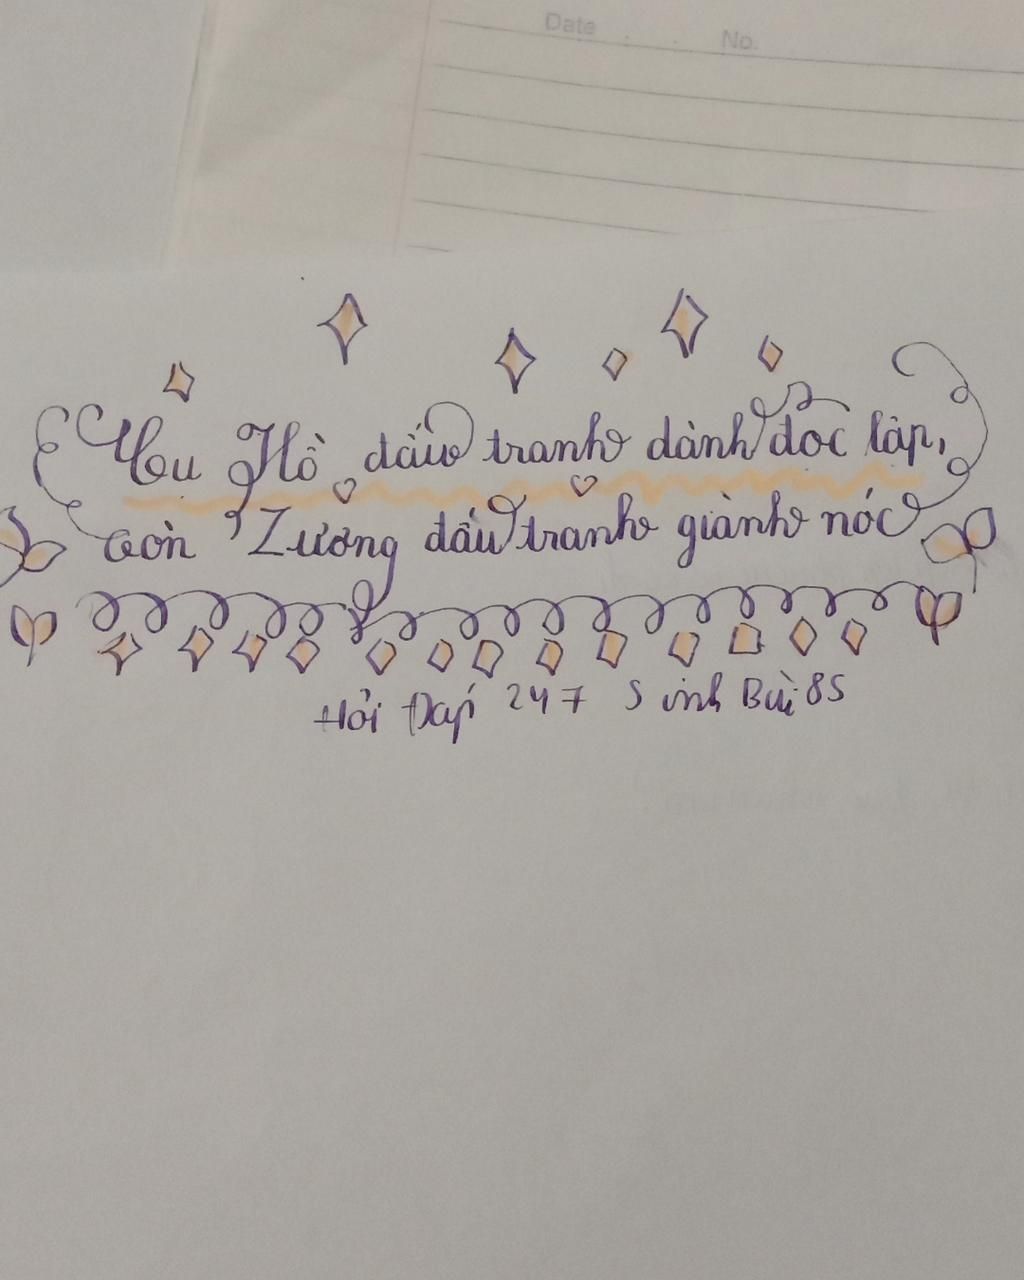 Date No.
Cụ Hồ dấu tranh dành đôc lâp,
còn Lương dấu tranh giành nóc
Hỏi Đáp 247 Sinh Bùi 85